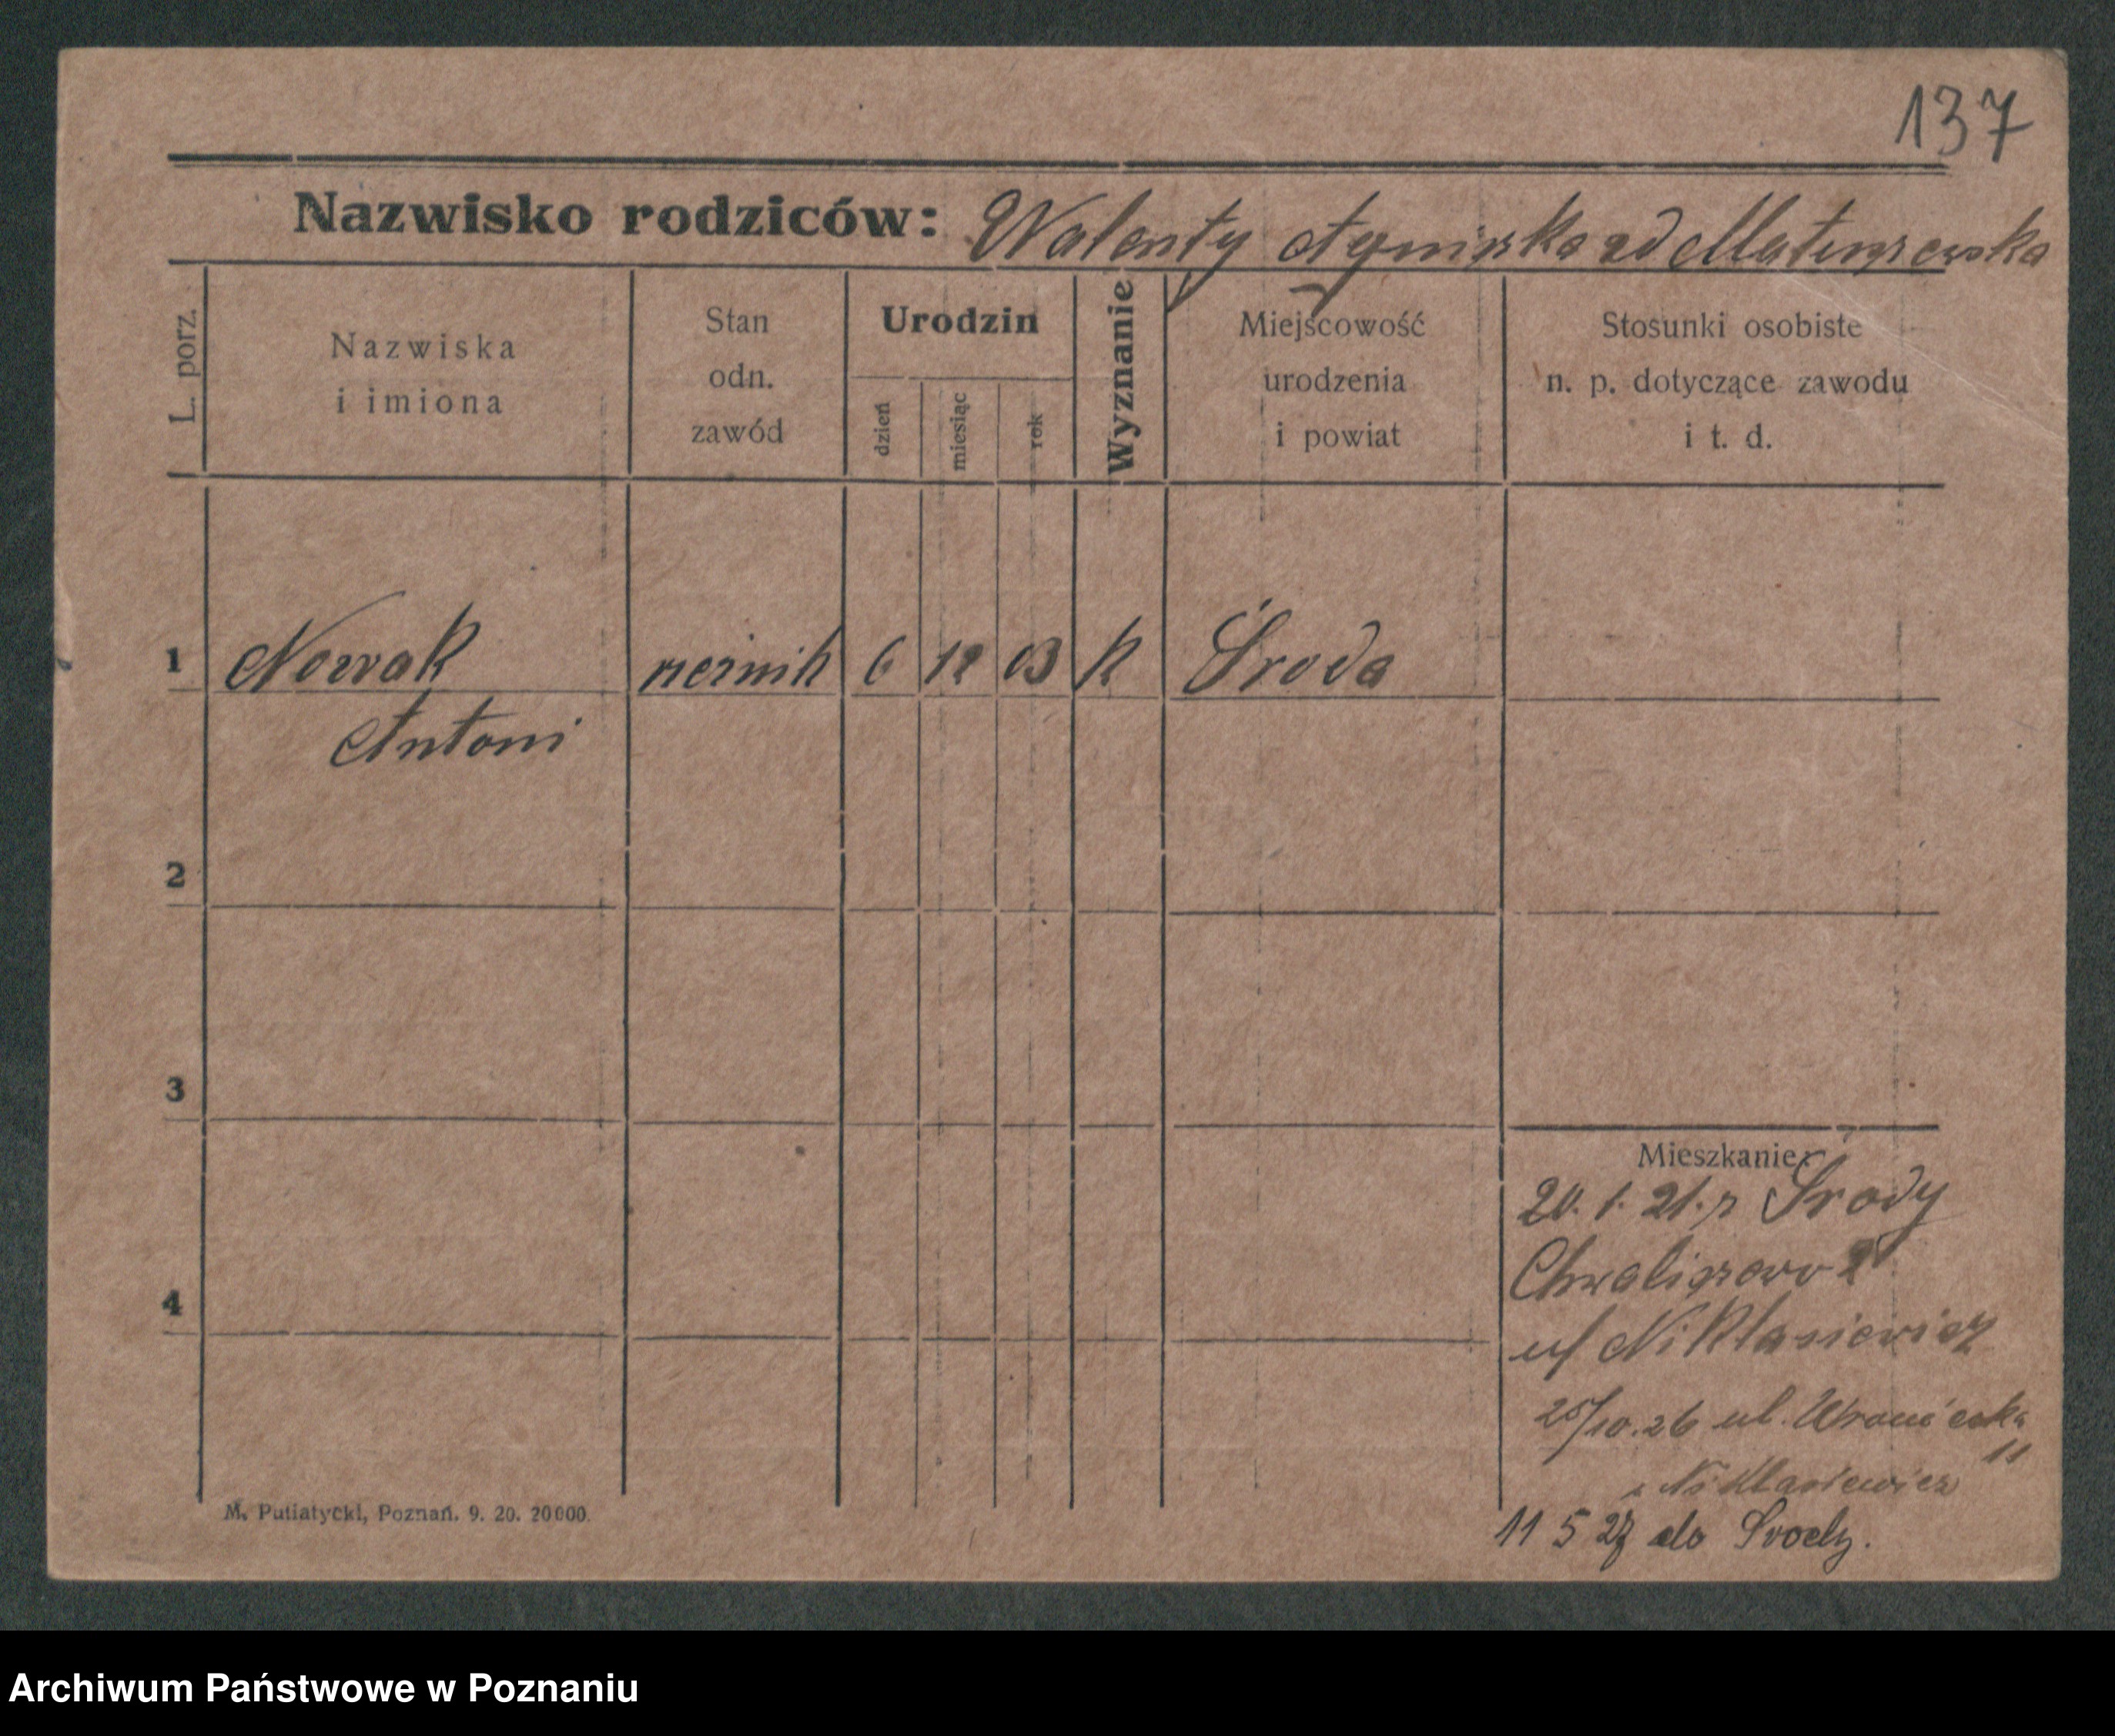 137
Nazwisko rodziców: Walenty Agnieszka zd Mateuszewska
L. porz.
Nazwiska
i imiona
Stan
odn.
zawód
Urodzin
dzień
miesiąc
rok
Wyznanie
Miejscowość
urodzenia
i powiat
Stosunki osobiste
n. p. dotyczące zawodu
i t. d.
1 Nowak 6 12 03 k Środa
Antoni
2
3
4
Mieszkanie:
20. 1. 21. z Środy
Chwaliszewo
u/ Niklasiewicz
25/10. 26 ul. Wroniecka
11
" Niklasiewicz
11 5 27 do Środy.
M. Putiatycki, Poznań. 9. 20. 20000.
Archiwum Państwowe w Poznaniu